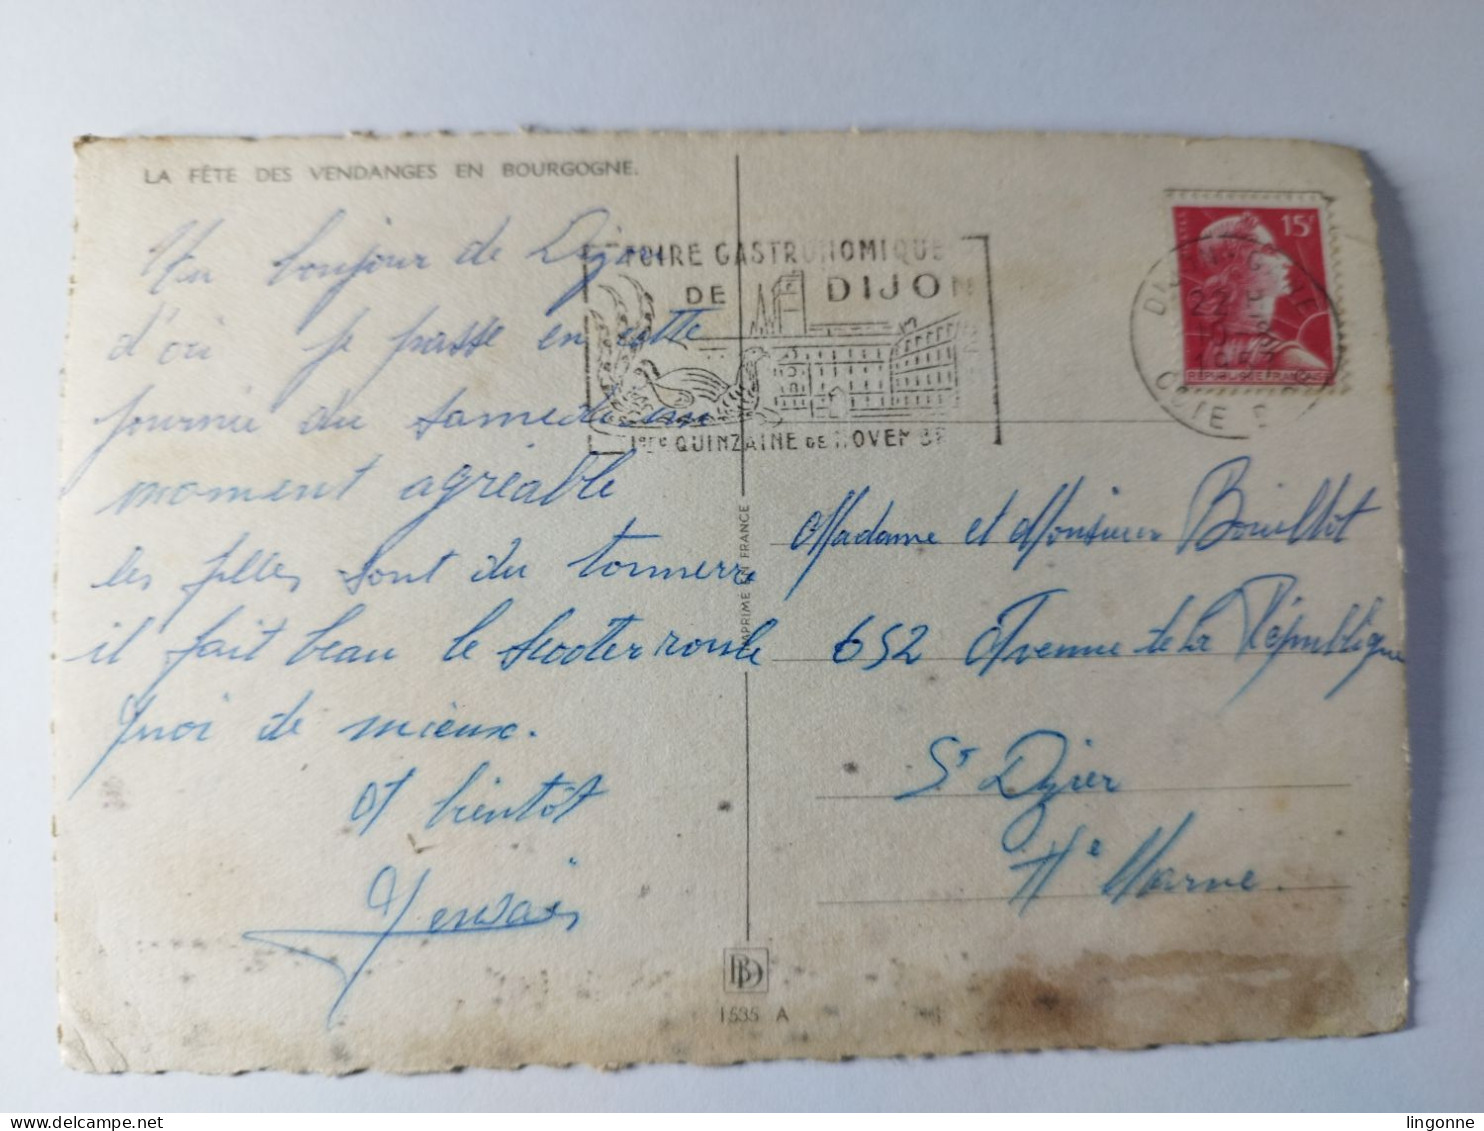 LA FÊTE DES VENDANGES EN BOURGOGNE.
Un bonjour de Dijon
d'où je passe en cette
journée du samedi un
moment agréable
les filles sont du tonnerre
il fait beau le scooter roule
quoi de mieux.
A bientôt
Gervais
FOIRE GASTRONOMIQUE
DE DIJON
1ère QUINZAINE DE NOVEMBR
15F
REPUBLIQUE FRANÇAISE
22
1957
COTE D
IMPRIMÉ EN FRANCE
Madame et Monsieur Bouillot
652 Avenue de la République
St Dizier
Hte Marne.
1535 A
lingonne